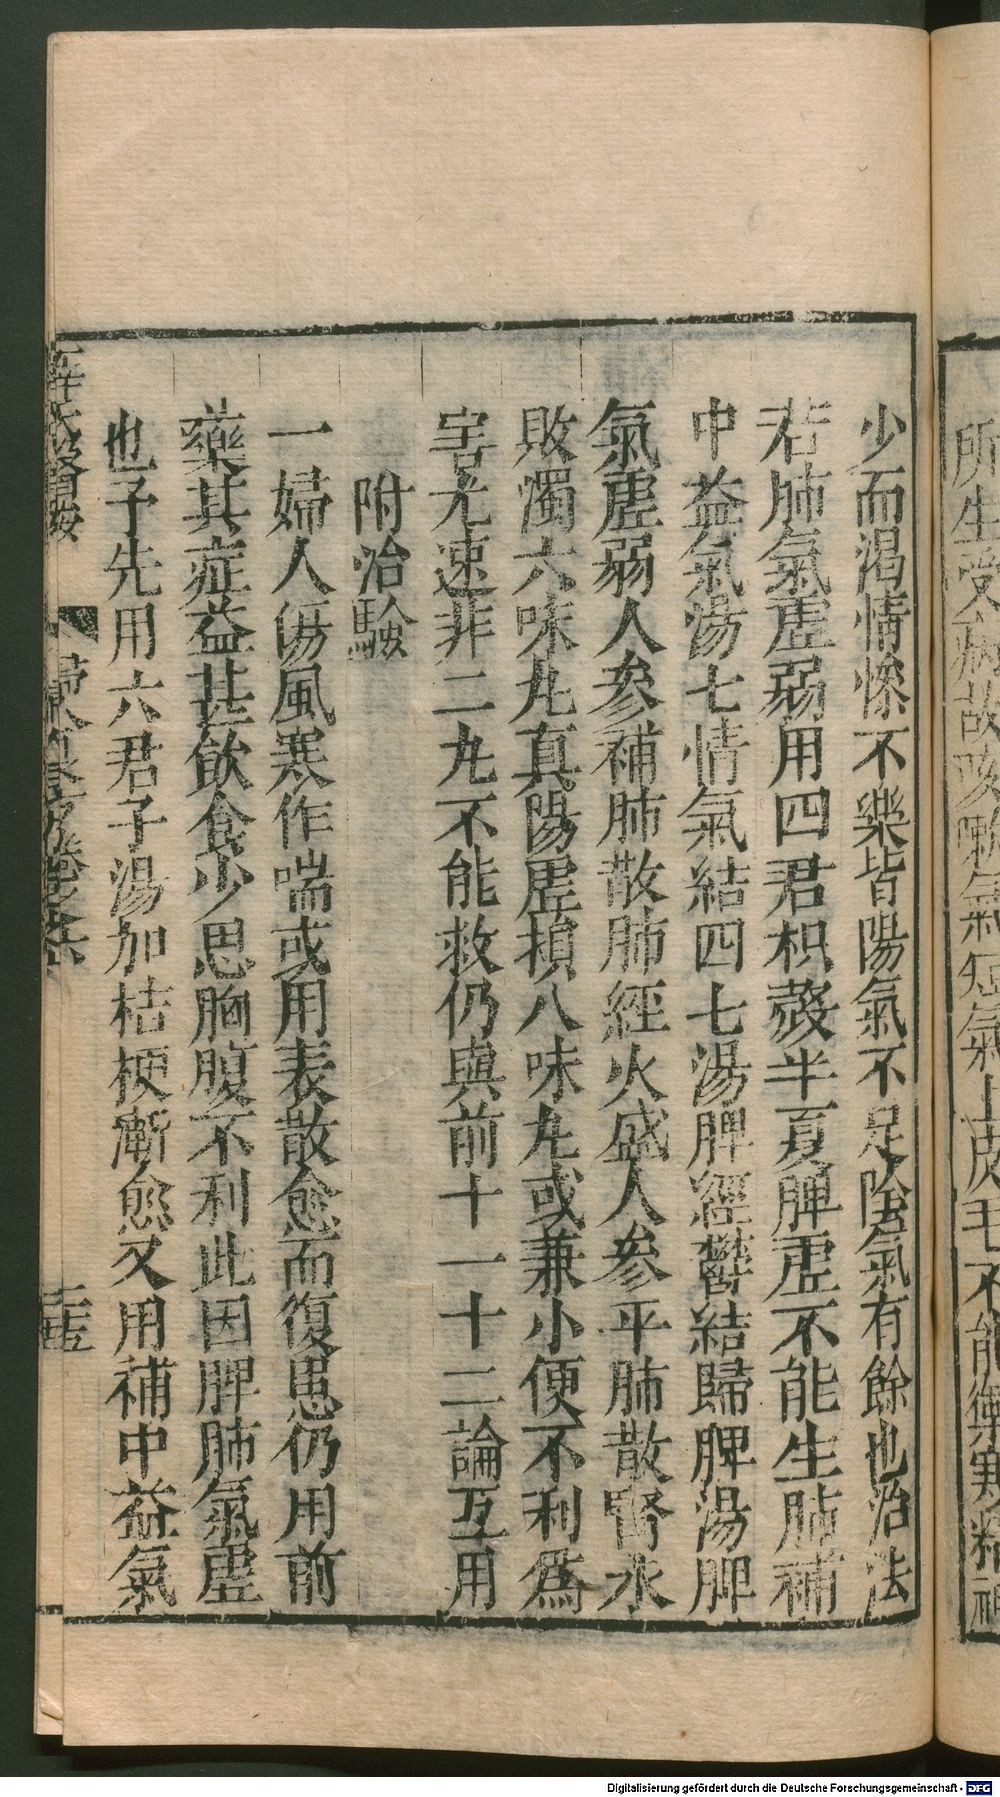 所生受病故咳嗽氣短氣上皮毛不能禦寒精神
少而渴情慘不樂皆陽氣不足陰氣有餘也治法
若肺氣虛弱用四君枳殼半夏脾虛不能生肺補
中益氣湯七情氣結四七湯脾經鬱結歸脾湯脾
氣虛弱人參補肺散肺經火盛人參平肺散腎水
敗濁六味丸真陽虛損八味丸或兼小便不利為
害尤速非二丸不能救仍與前十一十二論互用
附治驗
一婦人傷風寒作喘或用表散愈而復患仍用前
藥其症益甚飲食少思胸腹不利此因脾肺氣虛
也予先用六君子湯加桔梗漸愈又用補中益氣
薛氏醫按
婦人良方卷之六
Digitalisierung gefördert durch die Deutsche Forschungsgemeinschaft - DFG